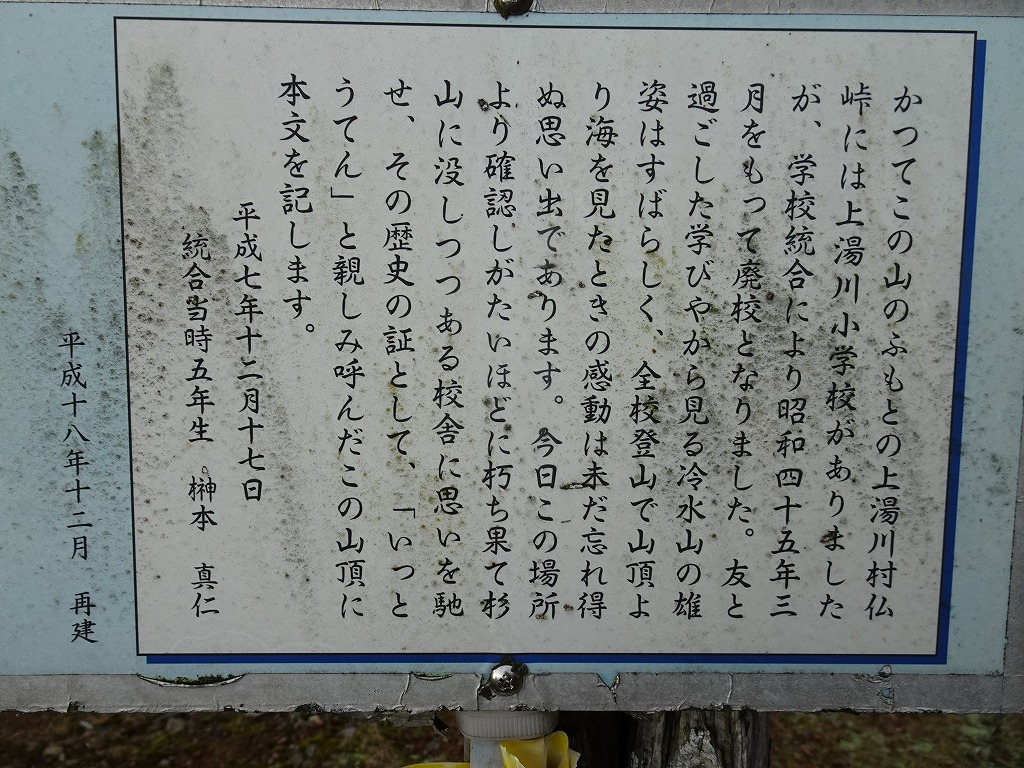 かつてこの山のふもとの上湯川村仏
峠には上湯川小学校がありました
が、学校統合により昭和四十五年三
月をもって廃校となりました。友と
過ごした学びやから見る冷水山の雄
姿はすばらしく、全校登山で山頂よ
り海を見たときの感動は未だ忘れ得
ぬ思い出であります。今日この場所
より確認しがたいほどに朽ち果て杉
山に没しつつある校舎に思いを馳
せ、その歴史の証として、「いっと
うてん」と親しみ呼んだこの山頂に
本文を記します。
平成七年十二月十七日
統合当時五年生 榊本 真仁
平成十八年十二月 再建